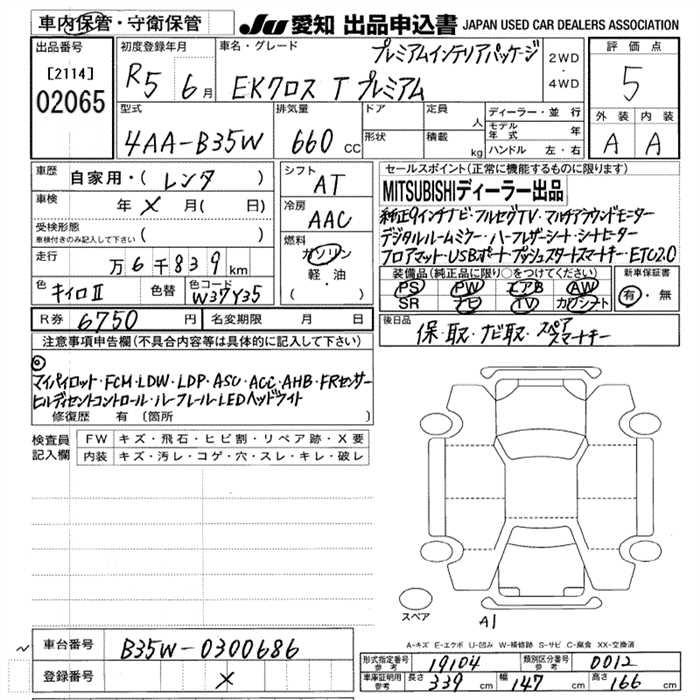 車内保管・守衛保管
JU 愛知 出品申込書 JAPAN USED CAR DEALERS ASSOCIATION
出品番号
[2114]
02065
初度登録年月
R5 6月
車名・グレード
プレミアムインテリアパッケージ
EKクロス T プレミアム
2WD
・
4WD
評価点
5
外装 内装
A A
型式
4AA-B35W
排気量
660 CC
ドア
形状
定員 人
積載 kg
ディーラー・並行
モデル年式 年
ハンドル 左・右
車歴 自家用・( レンタ )
車検 年 × 月( 日)
受検形態
車検付きのみ記入して下さい ( )
走行 万 6 千 8 3 9 km
色 キイロII 色替 色コード W37Y35
シフト AT
冷房 AAC
燃料
ガソリン
軽・油
( )
セールスポイント(正常に機能するものに限ります)
MITSUBISHIディーラー出品
純正9インチナビ・フルセグTV・マルチアラウンドモニター
デジタルルームミラー・ハーフレザーシート・シートヒーター
フロアマット・USBポート・プッシュスタートスマートキー・ETC2.0
装備品(純正品に限り○をつけてください)
PS PW エアB AW
SR ナビ TV カワシート
新車保証書
有・無
R券 6750 円 名変期限 月 日
後日品
保・取・ナビ取・スペアスマートキー
注意事項申告欄(不具合内容等は具体的に記入して下さい)
◎
マイパイロット・FCM・LDW・LDP・ASC・ACC・AHB・FRセンサー
ヒルディセントコントロール・ルーフレール・LEDヘッドライト
修復歴 有 〔箇所 〕
検査員記入欄
FW キズ・飛石・ヒビ割・リペア跡・X要
内装 キズ・汚レ・コゲ・穴・スレ・キレ・破レ
スペア
A1
A-キズ E-エクボ U-凹み W-補修跡 S-サビ C-腐食 XX-交換済
車台番号 B35W-0300686
登録番号 ×
形式指定番号 参考 19104 類別区分番号 参考 0012
車庫証明用 参考 長さ 339 幅 147 高さ 166 cm